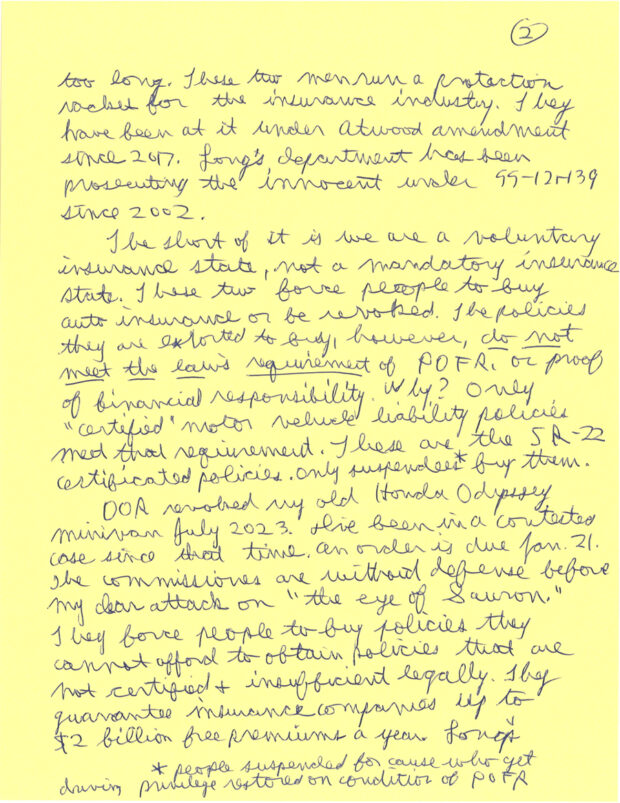 2
too long. These two men run a protection
racket for the insurance industry. They
have been at it under Atwood amendment
since 2017. Long's department has been
prosecuting the innocent under 55-12-139
since 2002.
The short of it is we are a voluntary
insurance state, not a mandatory insurance
state. These two force people to buy
auto insurance or be revoked. The policies
they are extorted to buy, however, do not
meet the law's requirement of POFR, or proof
of financial responsibility. Why? Only
"certified" motor vehicle liability policies
meet that requirement. These are the SR-22
certificated policies. Only suspendees* buy them.
DOR revoked my old Honda Odyssey
minivan July 2023. I've been in a contested
case since that time. An order is due Jan. 21.
The commissioners are without defense before
my dear attack on "the eye of Sauron."
They force people to buy policies they
cannot afford to obtain policies that are
not certified & insufficient legally. They
guarantee insurance companies up to
$2 billion free premiums a year. Long's
* people suspended for cause who get
driving privilege restored on condition of POFR